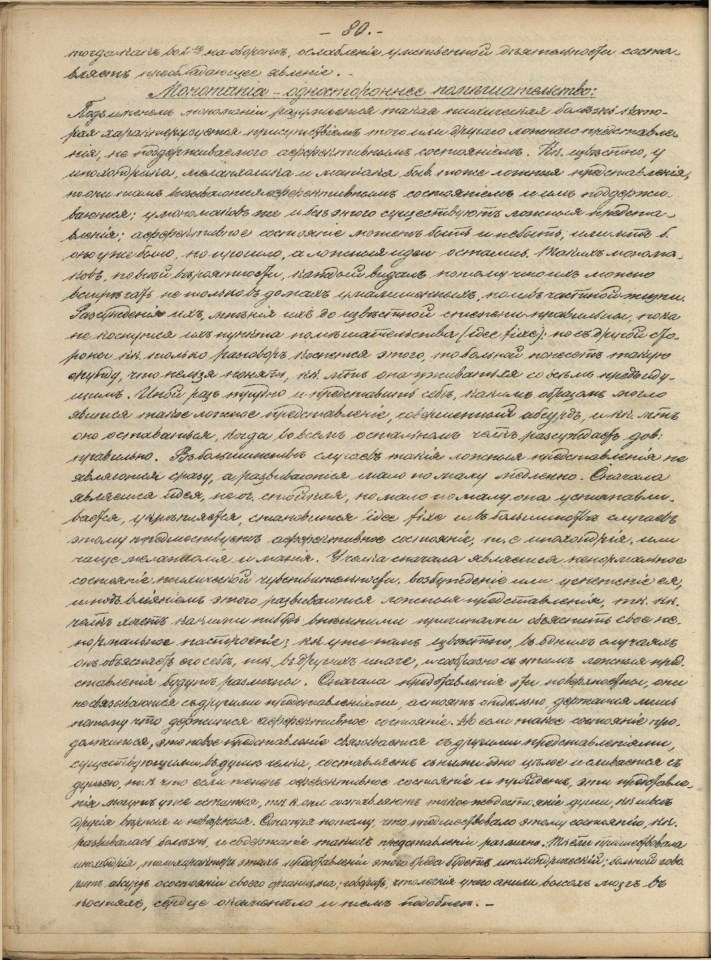 - 80. -
тогда какъ во 2-мъ на оборотъ, ослабленіе умственной дѣятельности соста-
вляетъ преобладающее явленіе. -
Мономанія - одностороннее помѣшательство:
Подъ именемъ мономаніи разумѣется такая психическая болѣзнь, кото-
рая характеризуется присутствіемъ того или другого ложнаго представле-
нія, не поддерживаемого аффективнымъ состояніемъ. Кк. извѣстно, у
ипохондрика, меланхолика и маніака быв. тоже ложныя представленія,
но они тамъ вызываются аффективнымъ состояніемъ и имъ поддержи-
ваются; у мономаковъ же и безъ этого существуютъ ложныя предста-
вленія; аффективное состояніе можетъ быть и не быть; или мтъ б.
оно уже было, но прошло, а ложныя идеи остались. Такихъ монома-
ковъ, по всей вѣроятности, каждый видалъ, потому что ихъ можно
встрѣчать не только въ домахъ умалишенныхъ, но и въ частной жизни.
Разсужденія ихъ, мнѣнія ихъ до извѣстной степени правильны, пока
не коснутся ихъ пункта помѣшательства (idee fixe): но съ другой сто-
роны кк. только разговоръ коснется этого, то больной понесетъ такую
ерунду, что нельзя понять, кк. мтъ она уживаться со всѣмъ предъиду-
щимъ. Иной разъ трудно и представить себѣ, какимъ образомъ могло
явиться такое ложное представленіе, совершенный абсурдъ, и кк. мтъ
оно оставаться, когда во всемъ остальномъ челкъ разсуждаетъ дов.
правильно. Въ большинствѣ случаевъ такія ложныя представленія не
являются сразу, а развиваются мало по малу медленно. Сначала
является идея, не стойкая, но мало по малу она устанавли-
вается, укрѣпляется, становится idee fixe и въ большинствѣ случаевъ
этому предшествуетъ аффективное состояніе, т. е. ипохондрія, или
чаще меланхолія и манія. У челка сначала является ненормальное
состояніе психической чувствительности, возбужденіе или угнетеніе ея,
и подъ вліяніемъ этого развиваются ложныя представленія, тк. кк.
челкъ хочетъ какими нибудь внѣшними причинами объяснить свое не-
нормальное настроеніе; кк. уже намъ извѣстно, въ однихъ случаяхъ
онъ объясняетъ его себѣ, так, въ другихъ иначе, и сообразно съ этимъ ложныя пред-
ставленія будутъ различны. Сначала представленія эти поверхностны, они
не связываются съ другими представленіями, а стоятъ отдѣльно, держатся лишь
потому что держится аффективное состояніе. Но если такое состояніе про-
должится, это новое представленіе связывается съ другими представленіями,
существующими въ душѣ челка, составляетъ съ ними одно цѣлое и сливается съ
душею, тк. что если теперь аффективное состояніе и пройдетъ, эти представле-
нія могутъ уже остаться, тк. к. они составляютъ такое же достояніе души, кк. и всѣ
другія вѣрныя и невѣрныя. Смотря потому, что предшествовало этому состоянію, кк.
развивалась болѣзнь, и содержаніе такихъ представленій различно. Если предшествовала
ипохондрія, то и характеръ этихъ представленій этого рода будетъ ипохондрическій; больной гово-
ритъ абсурдъ о состояніи своего организма; говоритъ, что легкія у него сгнили, высохъ мозгъ въ
костяхъ, сердце окаменѣло и тому подобное. -